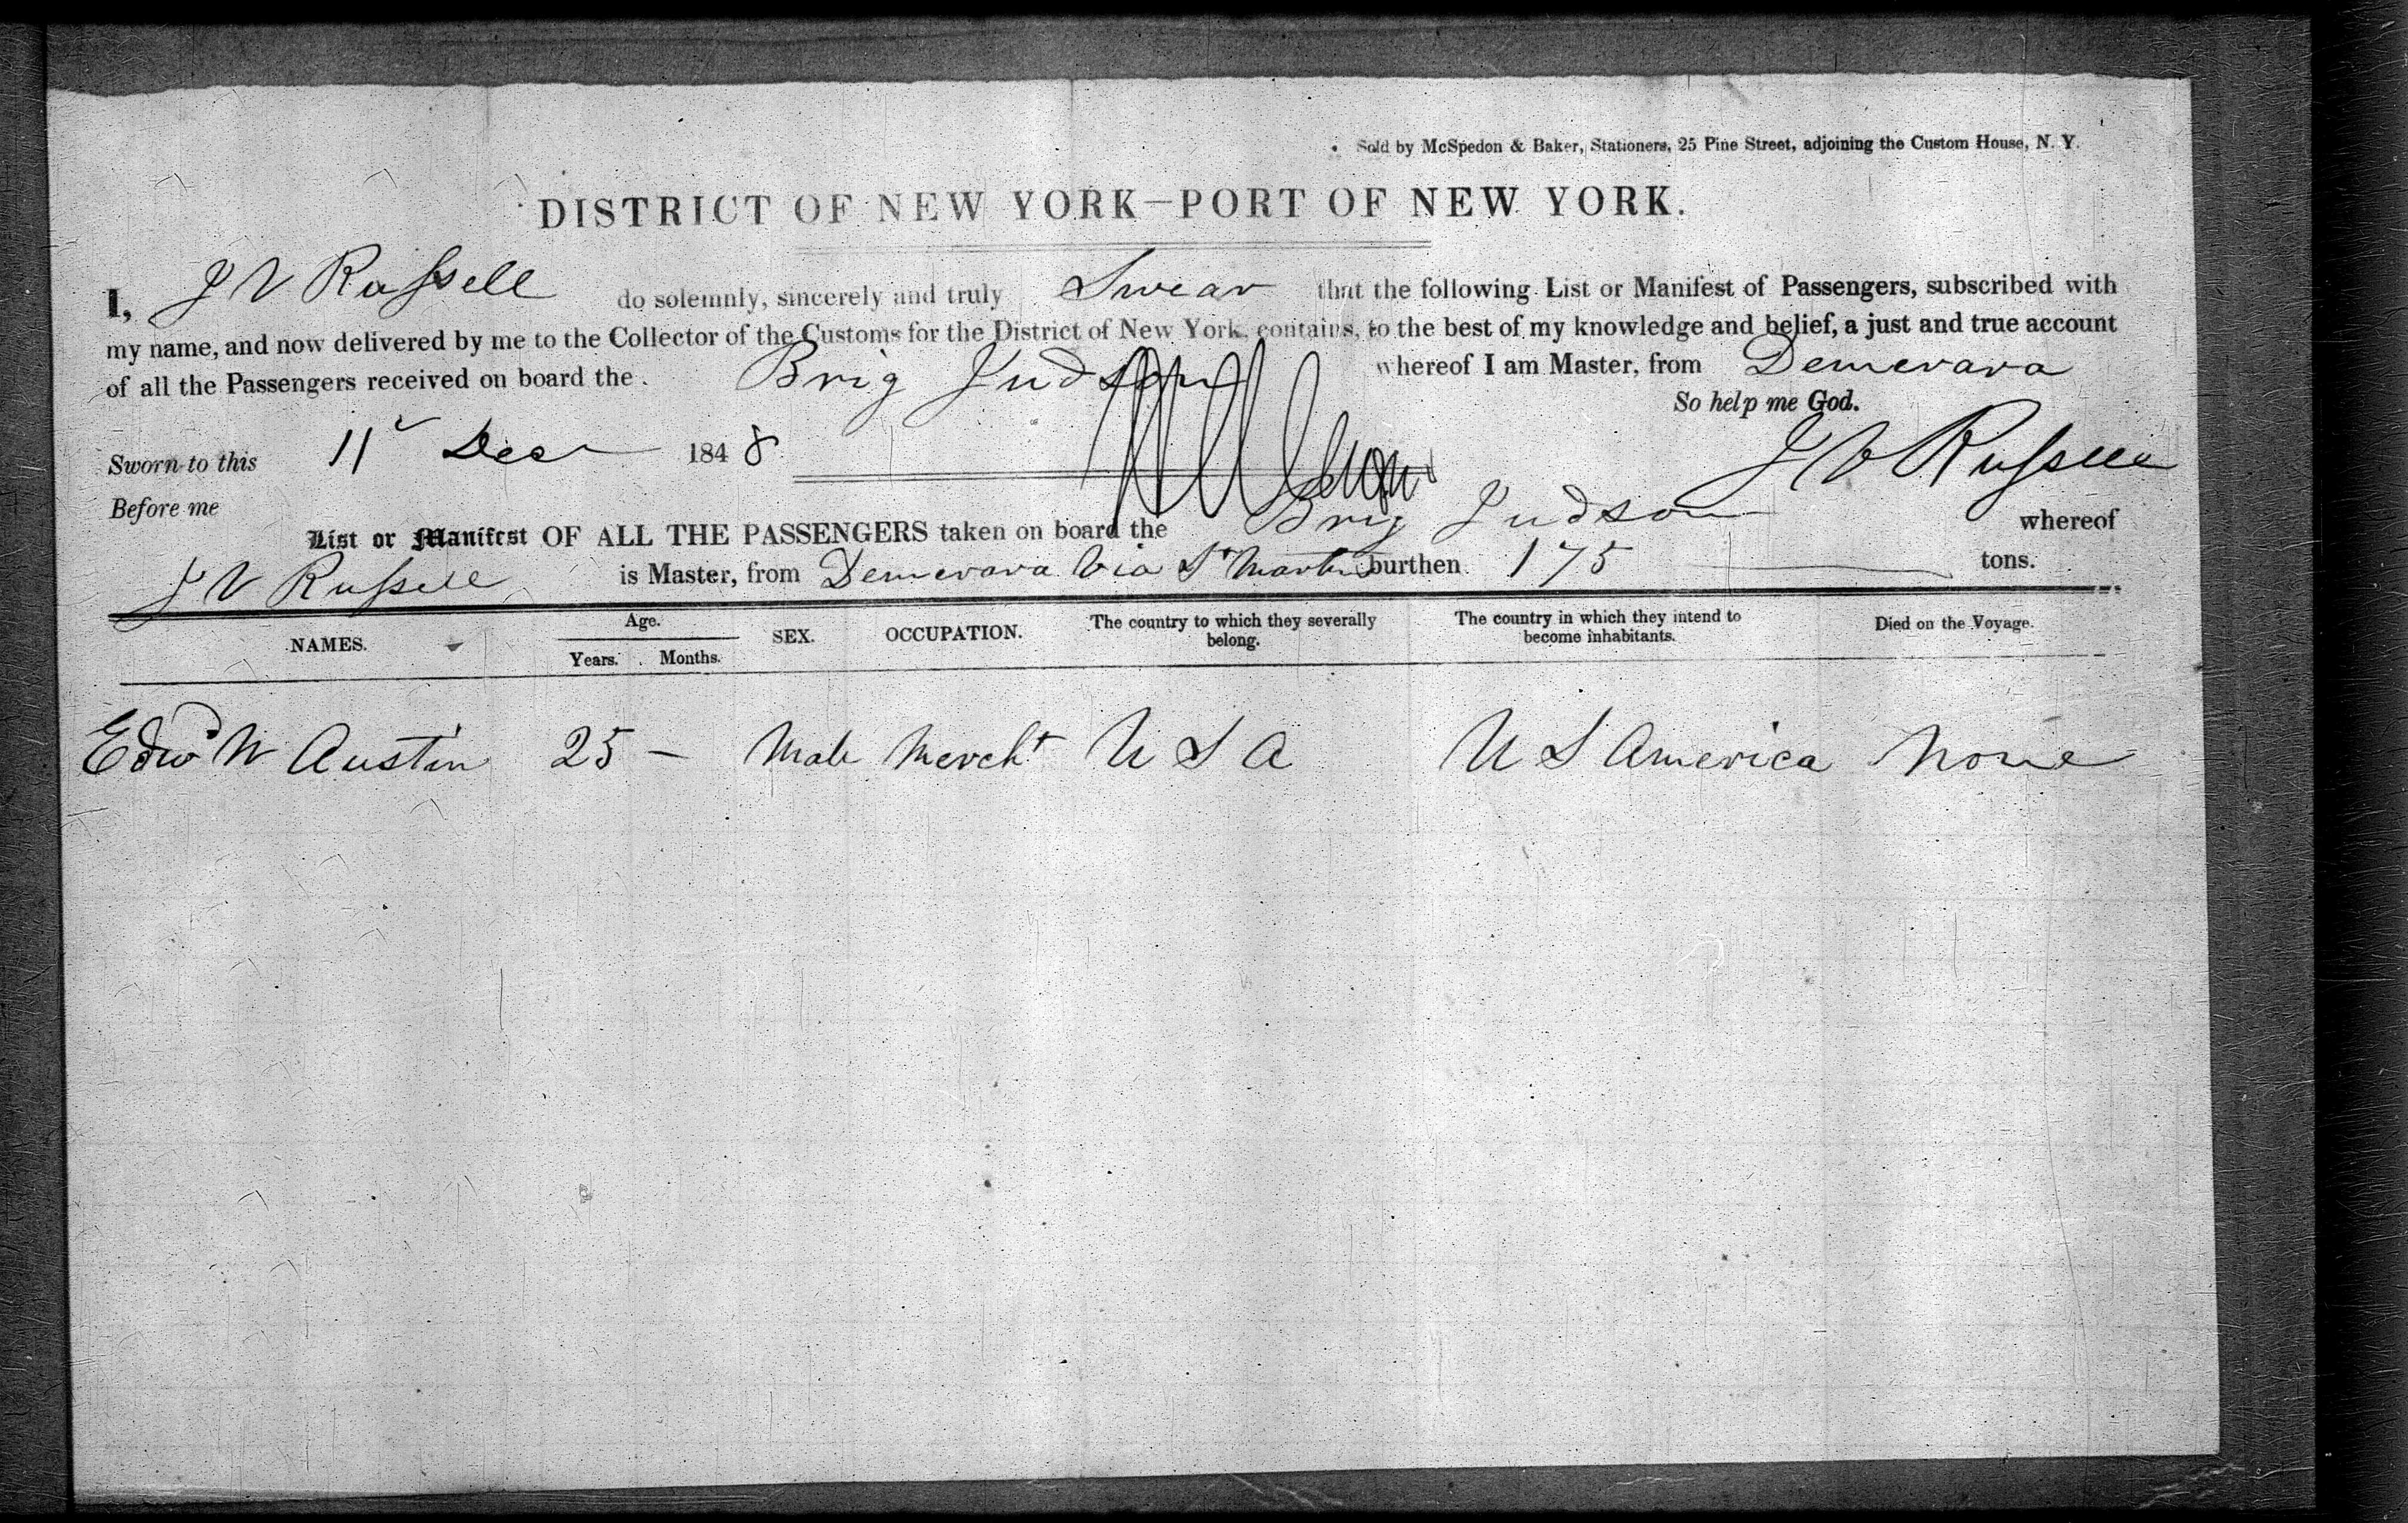 Sold by McSpedon & Baker, Stationers, 25 Pine Street, adjoining the Custom House, N. Y.
DISTRICT OF NEW YORK—PORT OF NEW YORK.
I, J V Russell do solemnly, sincerely and truly Swear that the following List or Manifest of Passengers, subscribed with
my name, and now delivered by me to the Collector of the Customs for the District of New York, contains, to the best of my knowledge and belief, a just and true account
of all the Passengers received on board the Brig Judson whereof I am Master, from Demerara
So help me God.
Sworn to this 11 Decr 1848 J V Russell
Before me
List or Manifest OF ALL THE PASSENGERS taken on board the Brig Judson whereof
J V Russell is Master, from Demerara Via St Martins burthen 175 tons.
NAMES. Age. Years. Months. SEX. OCCUPATION. The country to which they severally belong. The country in which they intend to become inhabitants. Died on the Voyage.
Edwd W Austin 25 – Male Mercht U S A U S America None